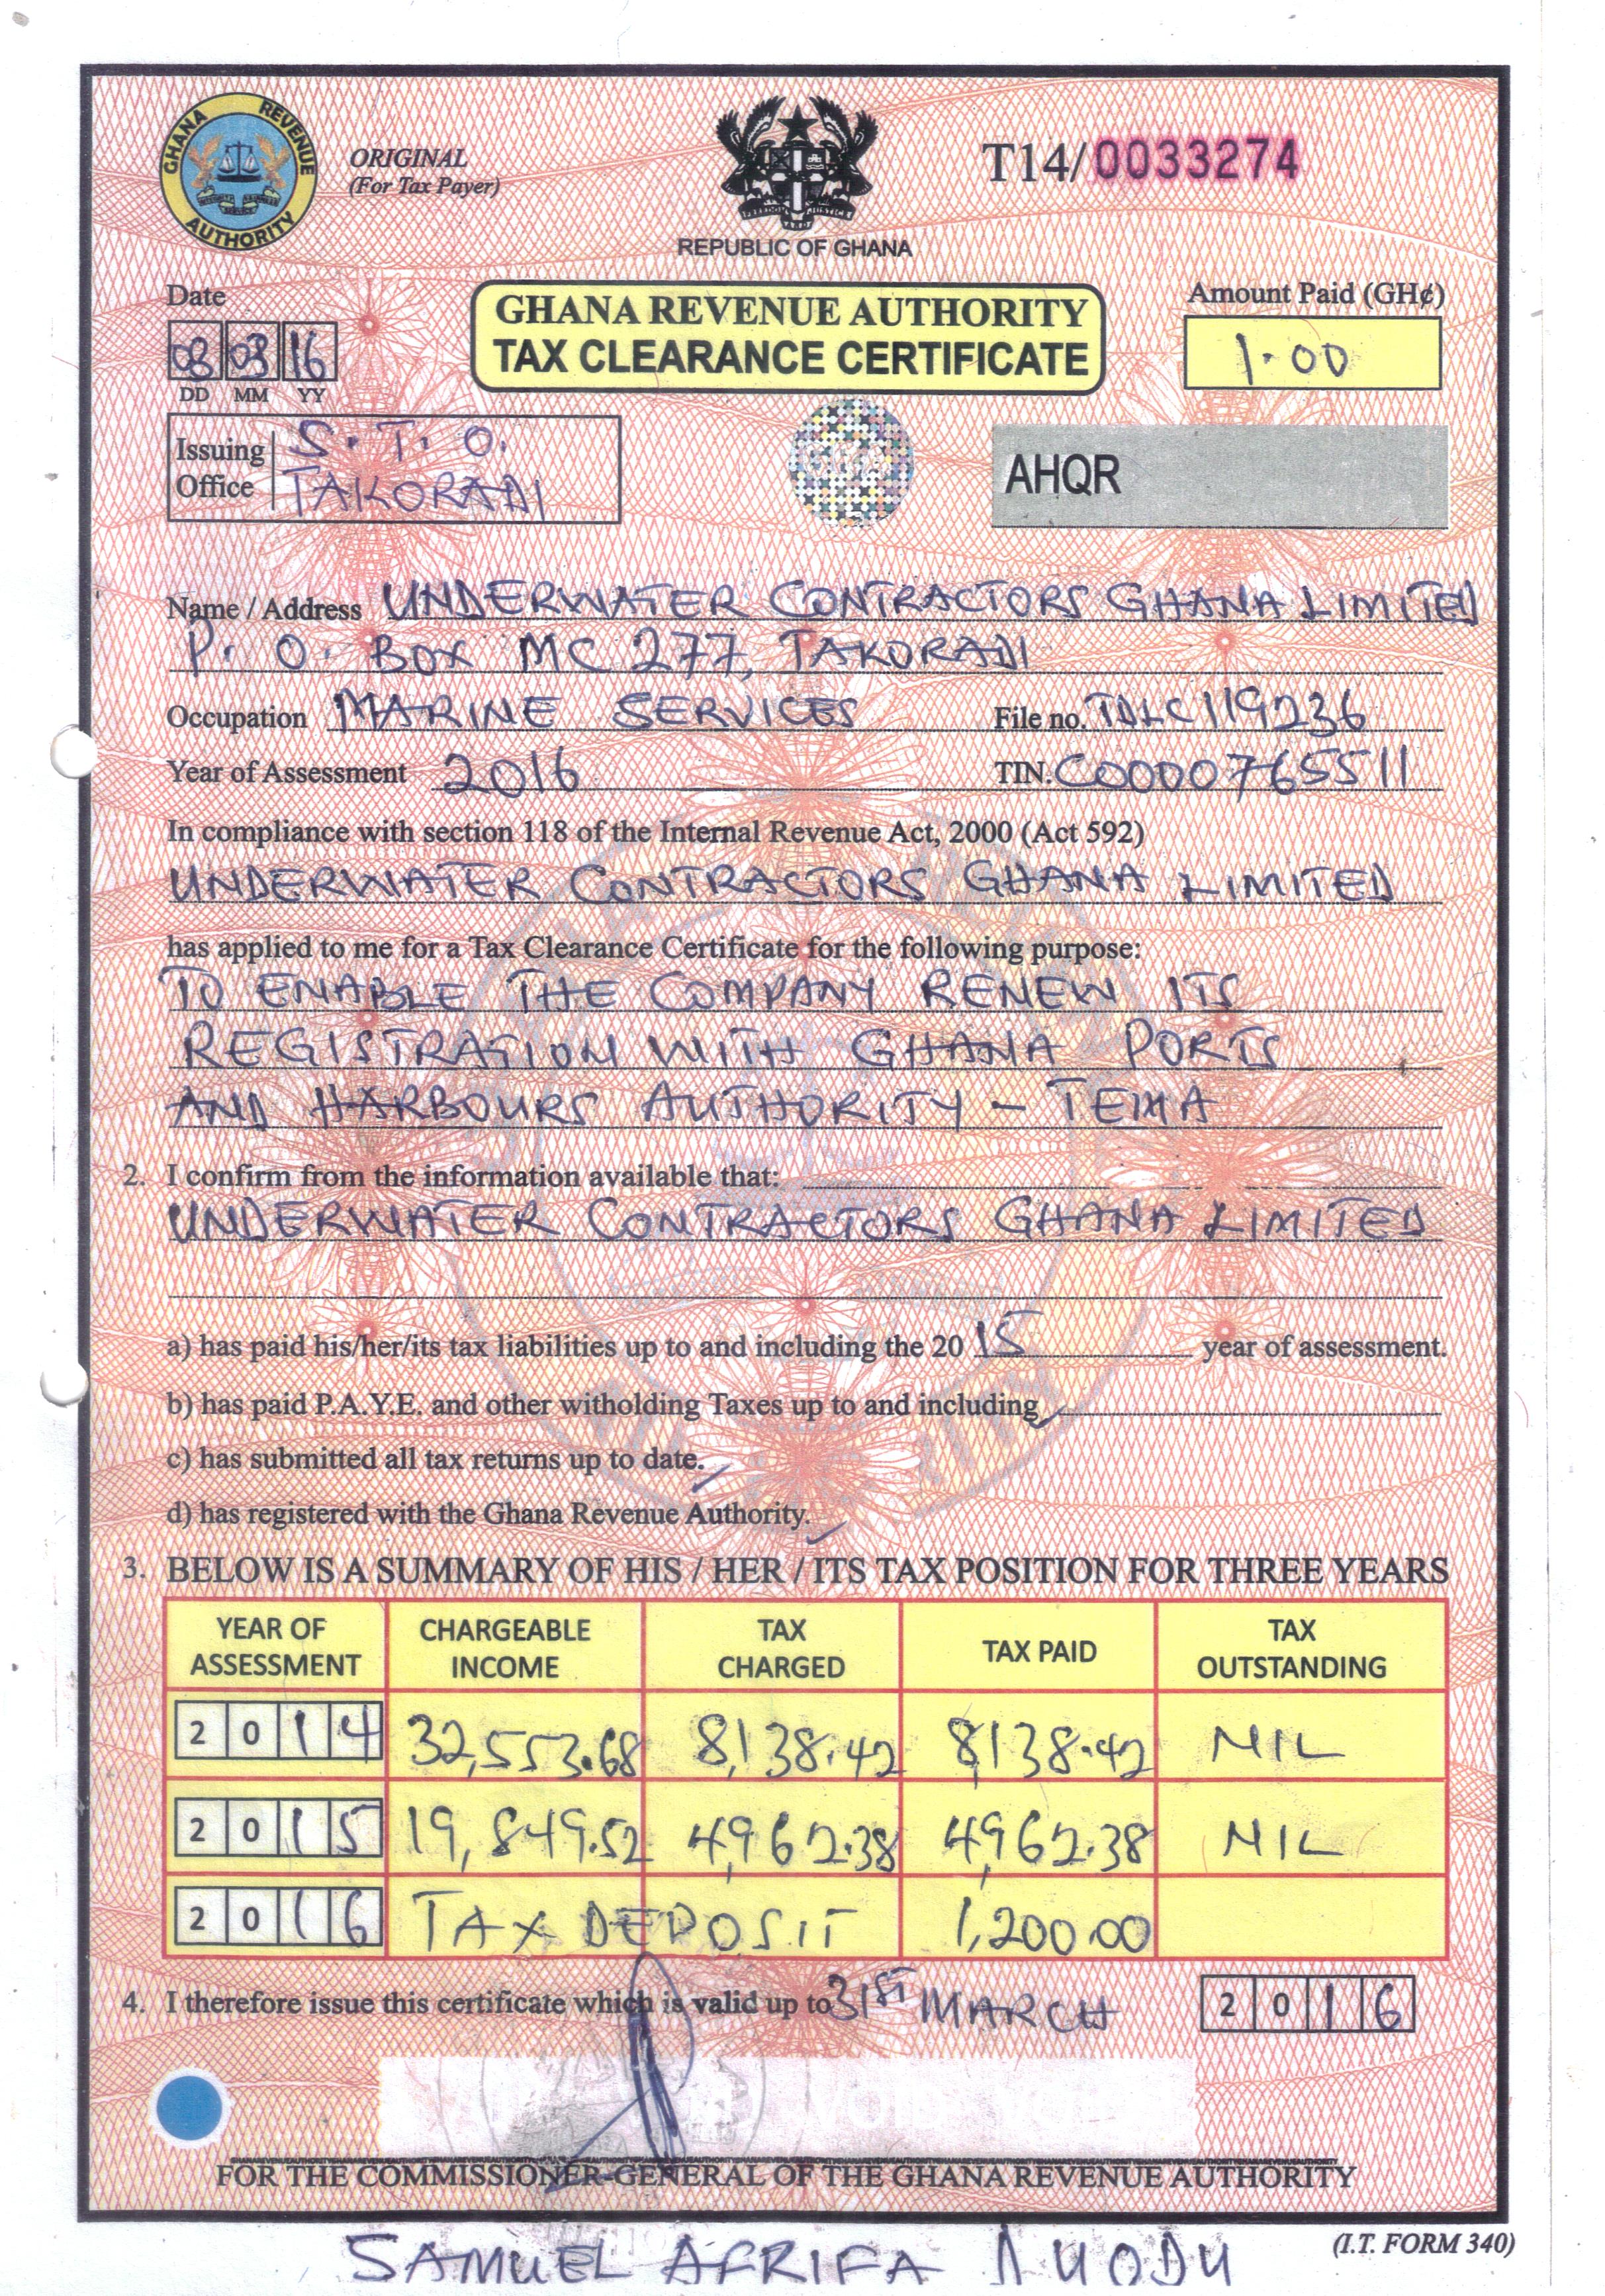 GHANA REVENUE AUTHORITY
ORIGINAL
(For Tax Payer)
FREEDOM JUSTICE
REPUBLIC OF GHANA
T14/0033274
Date
08 03 16
DD MM YY
GHANA REVENUE AUTHORITY
TAX CLEARANCE CERTIFICATE
Amount Paid (GH¢)
1.00
Issuing Office S. T. O.
TAKORADI
AHQR
Name / Address UNDERWATER CONTRACTORS GHANA LIMITED
P. O. BOX MC 277, TAKORADI
Occupation MARINE SERVICES File no. TDLC119236
Year of Assessment 2016 TIN. C0000765511
In compliance with section 118 of the Internal Revenue Act, 2000 (Act 592)
UNDERWATER CONTRACTORS GHANA LIMITED
has applied to me for a Tax Clearance Certificate for the following purpose:
TO ENABLE THE COMPANY RENEW ITS
REGISTRATION WITH GHANA PORTS
AND HARBOURS AUTHORITY - TEMA
2. I confirm from the information available that:
UNDERWATER CONTRACTORS GHANA LIMITED
a) has paid his/her/its tax liabilities up to and including the 20 15 year of assessment.
b) has paid P.A.Y.E. and other witholding Taxes up to and including
c) has submitted all tax returns up to date.
d) has registered with the Ghana Revenue Authority.
3. BELOW IS A SUMMARY OF HIS / HER / ITS TAX POSITION FOR THREE YEARS
YEAR OF ASSESSMENT CHARGEABLE INCOME TAX CHARGED TAX PAID TAX OUTSTANDING
2014 32,553.68 8,138.42 8,138.42 NIL
2015 19,849.52 4,962.38 4,962.38 NIL
2016 TAX DEPOSIT 1,200.00
4. I therefore issue this certificate which is valid up to 31ST MARCH 2016
FOR THE COMMISSIONER-GENERAL OF THE GHANA REVENUE AUTHORITY
(I.T. FORM 340)
SAMUEL AFRIFA